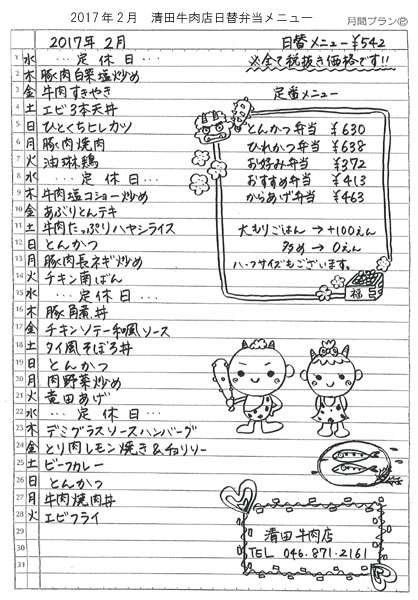 2017年2月 清田牛肉店日替弁当メニュー
月間プラン②
2017年 2月
日替メニュー ¥542
※全て税抜き価格です!!
1 水 … 定 休 日 …
2 木 豚肉白菜塩炒め
3 金 牛肉すきやき
4 土 エビ3本天丼
5 日 ひとくちヒレカツ
6 月 豚肉焼肉
7 火 油琳鶏
8 水 … 定 休 日 …
9 木 牛肉塩コショー炒め
10 金 あぶりとんテキ
11 土 牛肉たっぷりハヤシライス
12 日 とんかつ
13 月 豚肉長ネギ炒め
14 火 チキン南ばん
15 水 … 定 休 日 …
16 木 豚角煮丼
17 金 チキンソテー和風ソース
18 土 タイ風そぼろ丼
19 日 とんかつ
20 月 肉野菜炒め
21 火 竜田あげ
22 水 … 定 休 日 …
23 木 デミグラスソースハンバーグ
24 金 とり肉レモン焼き&チョリソー
25 土 ビーフカレー
26 日 とんかつ
27 月 牛肉焼肉丼
28 火 エビフライ
29
30
31
定番メニュー
とんかつ弁当 ¥630
ひれかつ弁当 ¥638
お好み弁当 ¥372
おすすめ弁当 ¥413
からあげ弁当 ¥463
大もりごはん → +100えん
多め → 0えん
ハーフサイズもございます。
福
清田牛肉店
TEL 046-871-2161